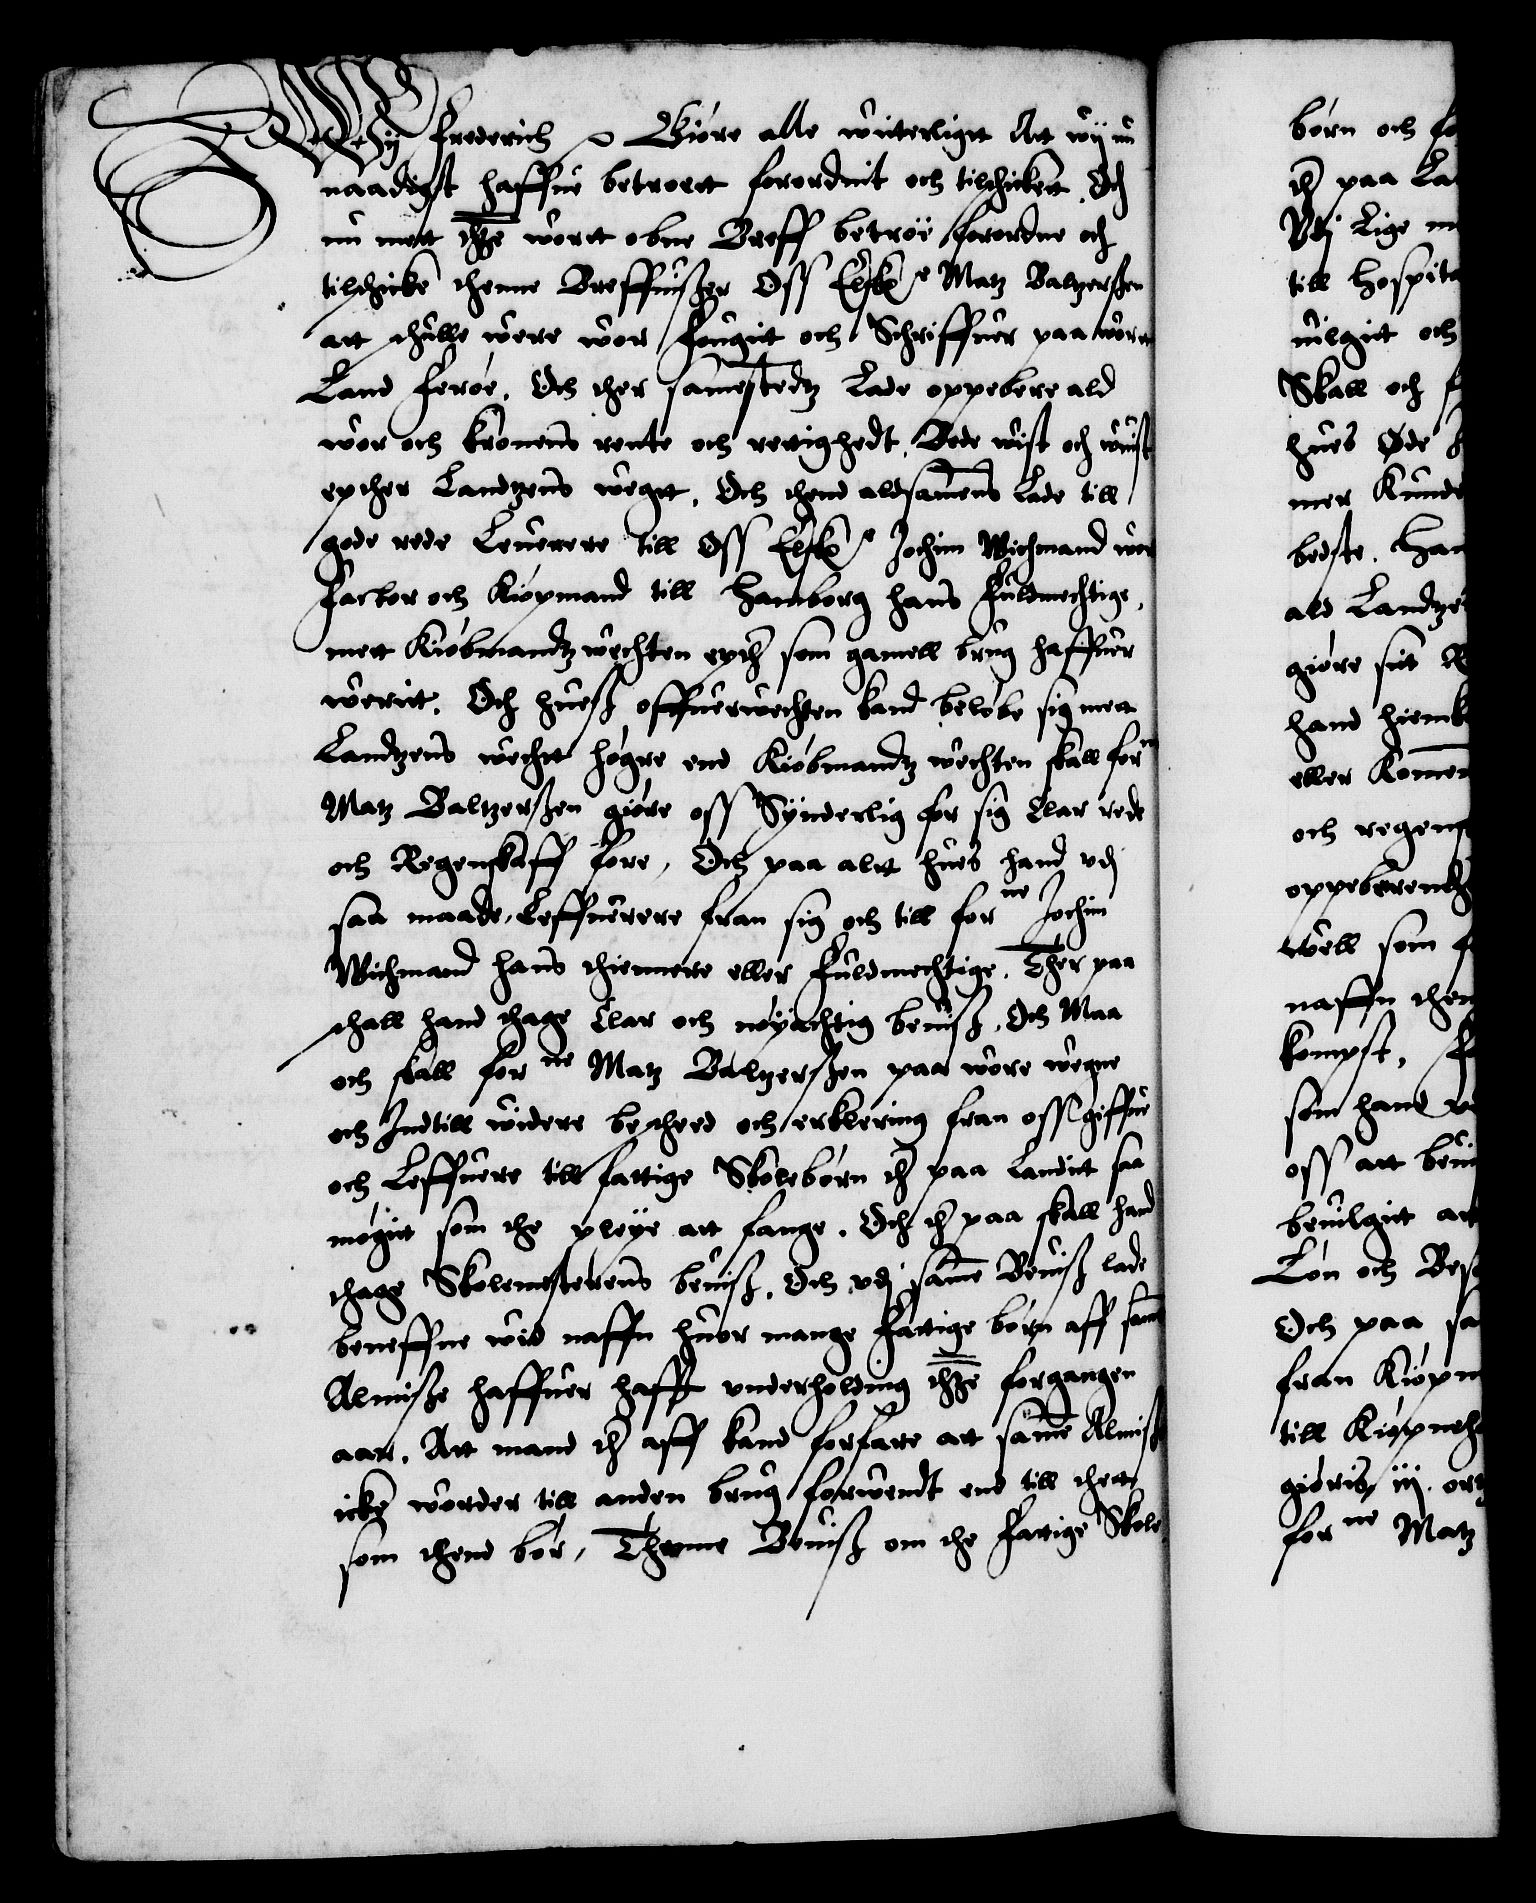 Wij Frederich Giøre alle witterligt Att wij nu
naadigst haffue betroett forordnit och tilschickett. Och
nu mett thze wortt obne Breff betroe forordne och
tilschicke thenne Breffuisßer Oss Elske Matz Baltzerßen
att schulle were wor Fougitt och Schriffuer paa wortt
Land Feroe. Och ther samestedtz Lade oppebere ald
wor och Kronens rente och rettighedt. Bode wist och wuist
epther Landtzens wegtt. Och thend aldsamens Lade till
gode rede Leuerere till Oss Elske Jochim Wichmand wor
Factor och Kiøpmand till Hamborg hans fuldmechtige,
mett Kiøbmandtz wechten epther som gamell brug haffuer
weritt. Och hueß offuerwechten kand beløbe sig mett
Landtzens wechtt høgre end Kiøbmandtz wechten skall forne
Matz Baltzerßen giøre oss Synderlig for sig Clar rede
och Regenskaff fore, Och paa altt hues hand vdj
saa maade, Leffuerere fran sig och till forne Jochim
Wichmand hans thiennere eller Fuldmechtige. Ther paa
schall hand thage Clar och nøyachtig beuiß. Och Maa
och skall forne Matz Baltzerßen paa wore wegne
och Indtill widere bescheed och erklering fran oss giffue
och Leffuere till fattige Skolebørn ther paa Landit saa
møgitt som the pleye att fange. Och ther paa skall hand
thage Skolemesterens beuiß. Och vdj same Beuiß lade
beneffne wid naffn huor mange Fattige børn aff same
Almiße haffuer hafft vnderholding thze forgangen
aar. Att mand ther aff kand forfare att same Almiße
icke worder till anden brug forwendt end till thett
som thend bør, Thenne Beuiß om the Fattige Skole
børn och fo
ther paa La
Vdj Lige m
till Hospita
uilgitt och
Skall och f
hues Øde
mer Kunde
bedste. Han
ald Landtze
giøre sit R
hand hiemk
eller Komen
och regens
oppeberendh
well som f
naffn then
kompst,
som hand
oss att beui
beuilgitt att
Løn och Bes
Och paa sa
fran Kiøpm
till Kiøpneh
giøris iij. or
forne Matz